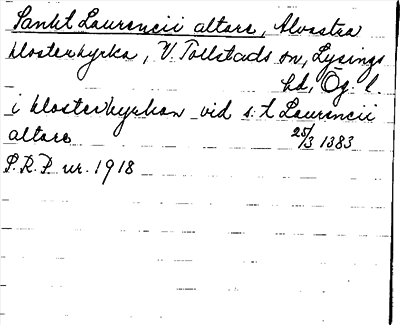 Sankt Laurencii altare, Alvastra
klosterkyrka, V. Tollstads sn, Lysings
hd, Ög. l.
i klosterkyrkan vid s:t Laurencii
altare 25/3 1383
S.R.P. nr. 1918